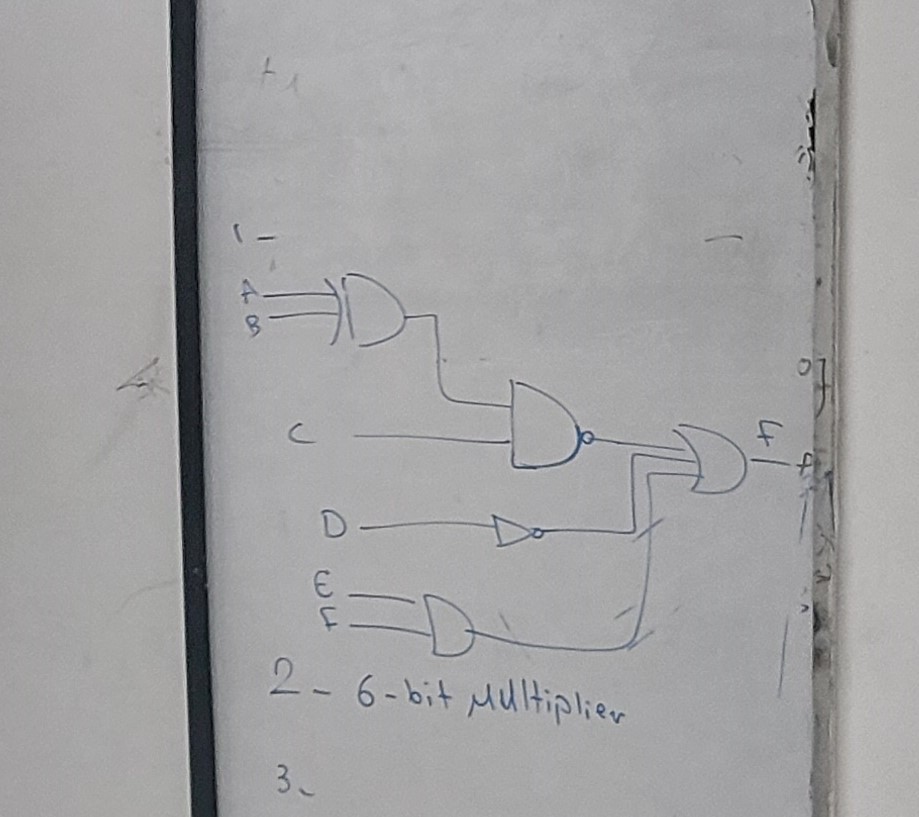 1-
A
B
C
F
D
E
F
2- 6-bit Multiplier
3-